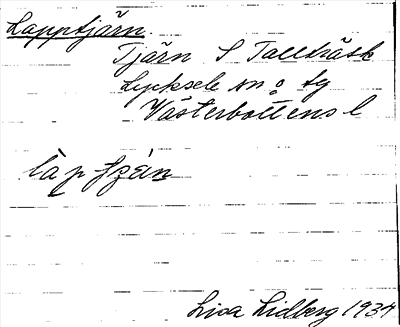 Lapptjärn.
Tjärn S Tallträsk
Lycksele sn o tg
Västerbottens l
Lisa Lidberg 1934